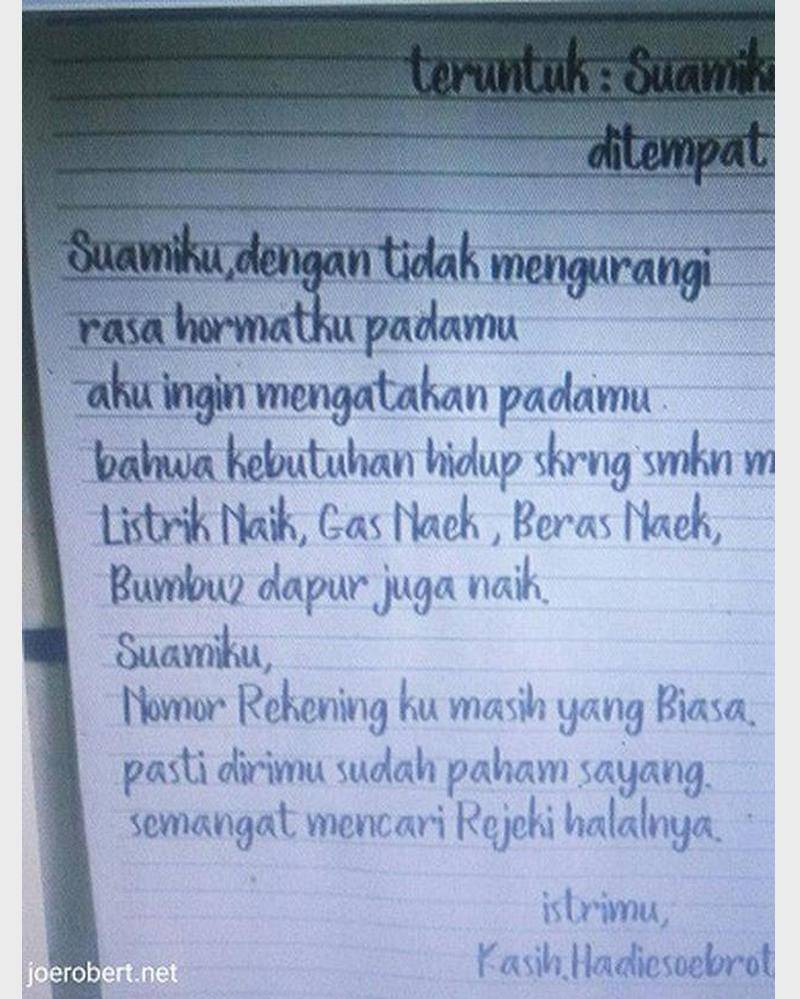 teruntuk : Suamiku
ditempat
Suamiku, dengan tidak mengurangi
rasa hormatku padamu
aku ingin mengatakan padamu.
bahwa kebutuhan hidup skrng smkn m
Listrik Naik, Gas Naek, Beras Naek,
Bumbu2 dapur juga naik.
Suamiku,
Nomor Rekening ku masih yang Biasa.
pasti dirimu sudah paham sayang.
semangat mencari Rejeki halalnya.
istrimu,
Kasih.Hadiesoebrot
joerobert.net